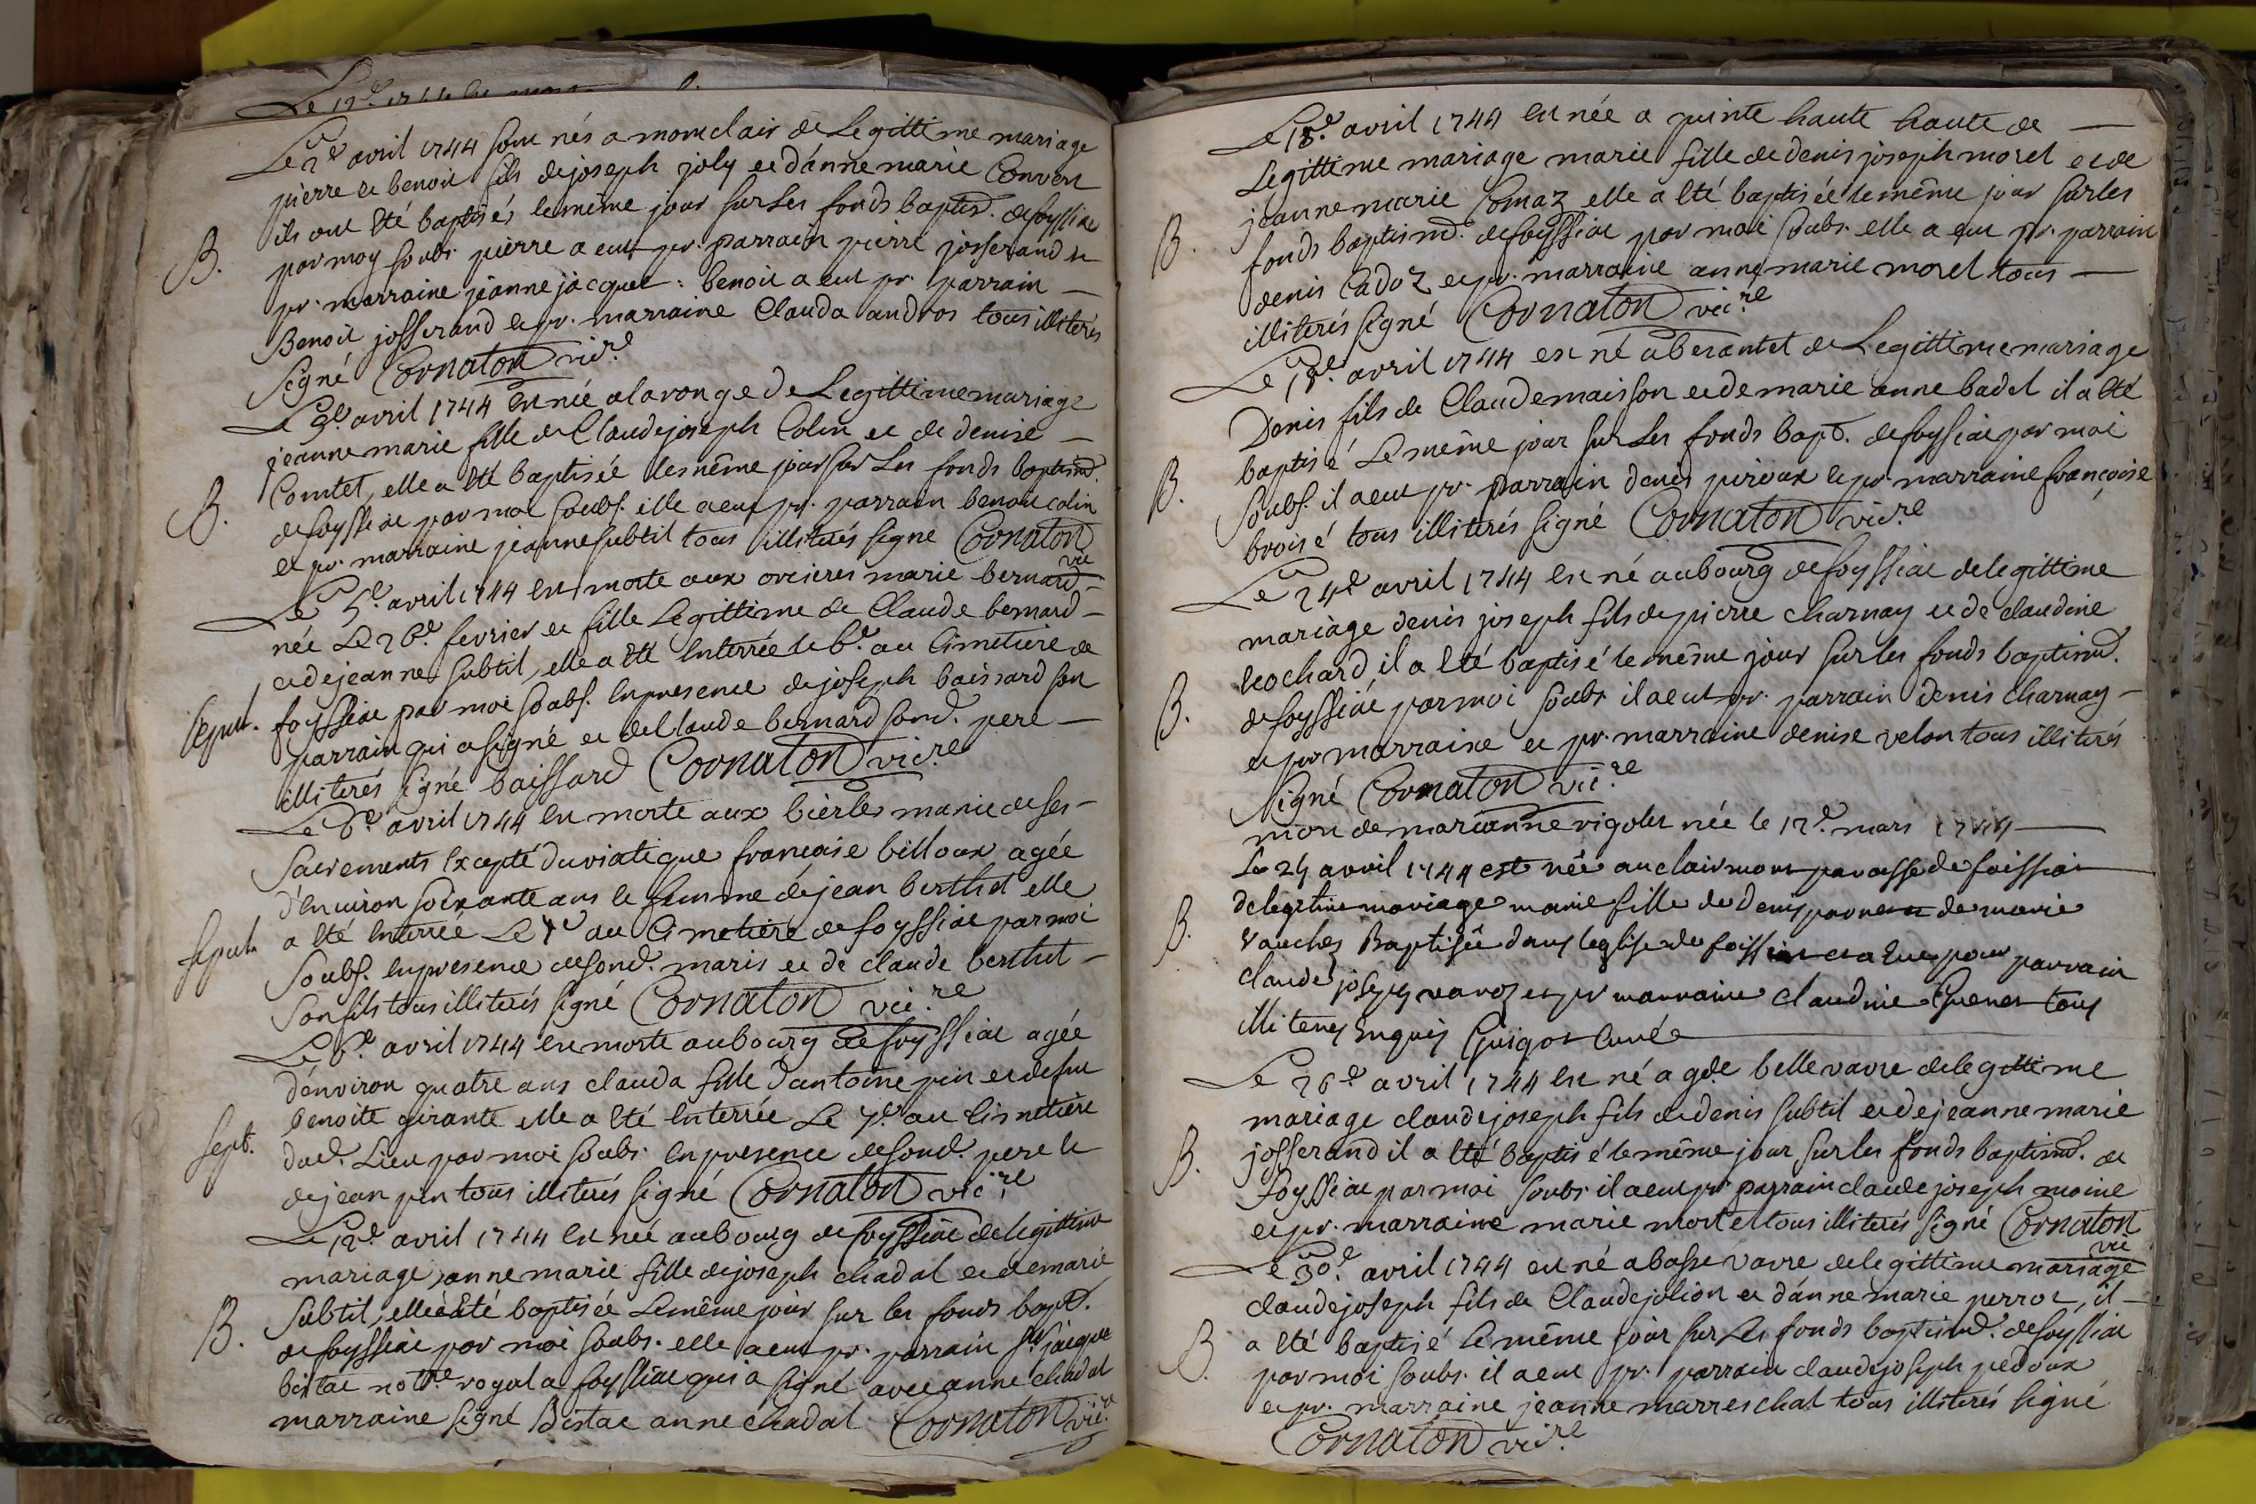 Le 2e avril 1744 sont nés a monclair de Legittime mariage
pierre et benoit fils de joseph joly et d'anne marie Convert
ils ont été baptisés le même jour sur les fonds baptism. de foyssiat
B. par moy soubs. pierre a eut pr. parrain pierre josserand et
pr. marraine jeanne jacquet : benoit a eut pr. parrain —
Benoit josserand et pr. marraine Clauda andros tous illiterés
signé Cornaton vicre
Le 3e avril 1744 est née a la ronge de Legittime mariage
jeanne marie fille de Claude joseph Colin et de denise —
Comtet, elle a été baptisée le même jour sur les fonds baptism.
B. de foyssiat par moi soubs. elle a eut pr. parrain benoit colin
et pr. marraine jeanne subtil tous illiterés signé Cornaton
vic
Le 5e avril 1744 est morte aux orcieres marie bernard
née Le 26e fevrier et fille Legittime de Claude bernard —
et de jeanne subtil, elle a été Enterrée le 6e au Cimetiere de
Sepult. foyssiat par moi soubs. En presence de joseph baissard son
parrain qui a signé et de Claude bernard sond. pere —
illiterés signé baissard Cornaton vicre
Le 6e avril 1744 est morte aux bierles munie de ses —
Sacrements Excepté du viatique françoise billoux agée
d'environ soixante ans et femme de jean berthet elle
Sepult. a été Enterrée Le 7e au Cimetiere de foyssiat par moi
soubs. En presence de sond. maris et de claude berthet —
son fils tous illiterés signé Cornaton vicre
Le 6e avril 1744 est morte au bourg de foyssiat agée
d'environ quatre ans clauda fille d'antoine pin et de fut
benoite girante elle a été Enterrée Le 7e au Cimetiere
Sept. dud. Lieu par moi soubs. En presence de sond. pere et
de jean pin tous illiterés signé Cornaton vicre
Le 12e avril 1744 est née au bourg de foyssiat de legittime
mariage anne marie fille de joseph chadal et de marie
Subtil, elle a été baptisée Le même jour sur les fonds bapt.
B. de foyssiat par moi soubs. elle a eut pr. parrain sr jacque
bistac notre royal a foyssiat qui a signé avec anne chadal
marraine signé Bistac anne chadal Cornaton vic
Le 18e avril 1744 est née a pinte haute haute de —
Legittime mariage marie fille de denis joseph morel et de
jeanne marie Comaz elle a été baptisée le même jour sur les
B. fonds baptism. de foyssiat par moi soubs. elle a eut pr. parrain
denis Cadoz et pr. marraine anne marie morel tous —
illiterés signé Cornaton vicre
Le 18e avril 1744 est né a berantet de Legittime mariage
Denis fils de Claude maisson et de marie anne badel il a été
baptisé Le même jour sur Les fonds bapt. de foyssiat par moi
B. soubs. il a eut pr. parrain denis piroux et pr. marraine françoise
broisé tous illiterés signé Cornaton vicre
Le 24e avril 1744 est né au bourg de foyssiat de legittime
mariage denis joseph fils de pierre charnay et de claudine
leochard il a été baptisé le même jour sur les fonds baptism.
B. de foyssiat par moi soubs. il a eut pr. parrain denis charnay —
et pr marraine et pr. marraine denise velon tous illiterés
signé Cornaton vicre
mort de marianne rigolet née le 12e mars 1744 —
Le 24 avril 1744 est née au clairmont paroisse de foissiat
B. de legitime mariage marie fille de Denis et de marie
Vauchez Baptisée dans leglise de foissiat et a Eue pour parrain
claude joseph et pr marraine claudine Guenet tous
illiterés Enquis Guigot Curé
Le 26e avril 1744 est né a gde belle vavre de legittime
mariage claude joseph fils de denis subtil et de jeanne marie
B. josserand il a été baptisé le même jour sur les fonds baptism. de
foyssiat par moi soubs. il a eut pr parrain claude joseph moine
et pr. marraine marie mortel tous illiterés signé Cornaton
vic
Le 30e avril 1744 est né a basse vavre de legittime mariage
claude joseph fils de Claude jolion et d'anne marie perrot, il —
B. a été baptisé le même jour sur les fonds baptism. de foyssiat
par moi soubs. il a eut pr. parrain claude joseph pedoux
et pr. marraine jeanne marreschal tous illiterés signé
Cornaton vicre